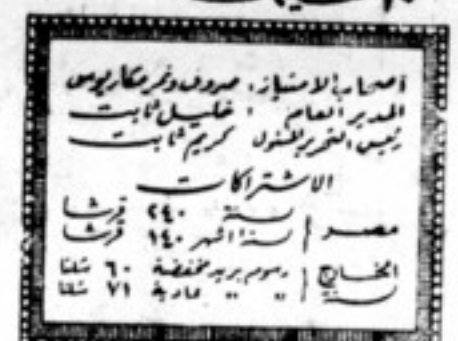 أصحاب الامتياز : صروف ونمر مكاريوس
المدير العام : خليل ثابت
رئيس التحرير المسئول كريم ثابت
الاشتراكات
مصر سنة ٢٤٠ قرشا
ستة اشهر ١٤٠ قرشا
الخارج رسوم بريد مخفضة ٦٠ شلنا
سنة " " عادية ٧١ شلنا